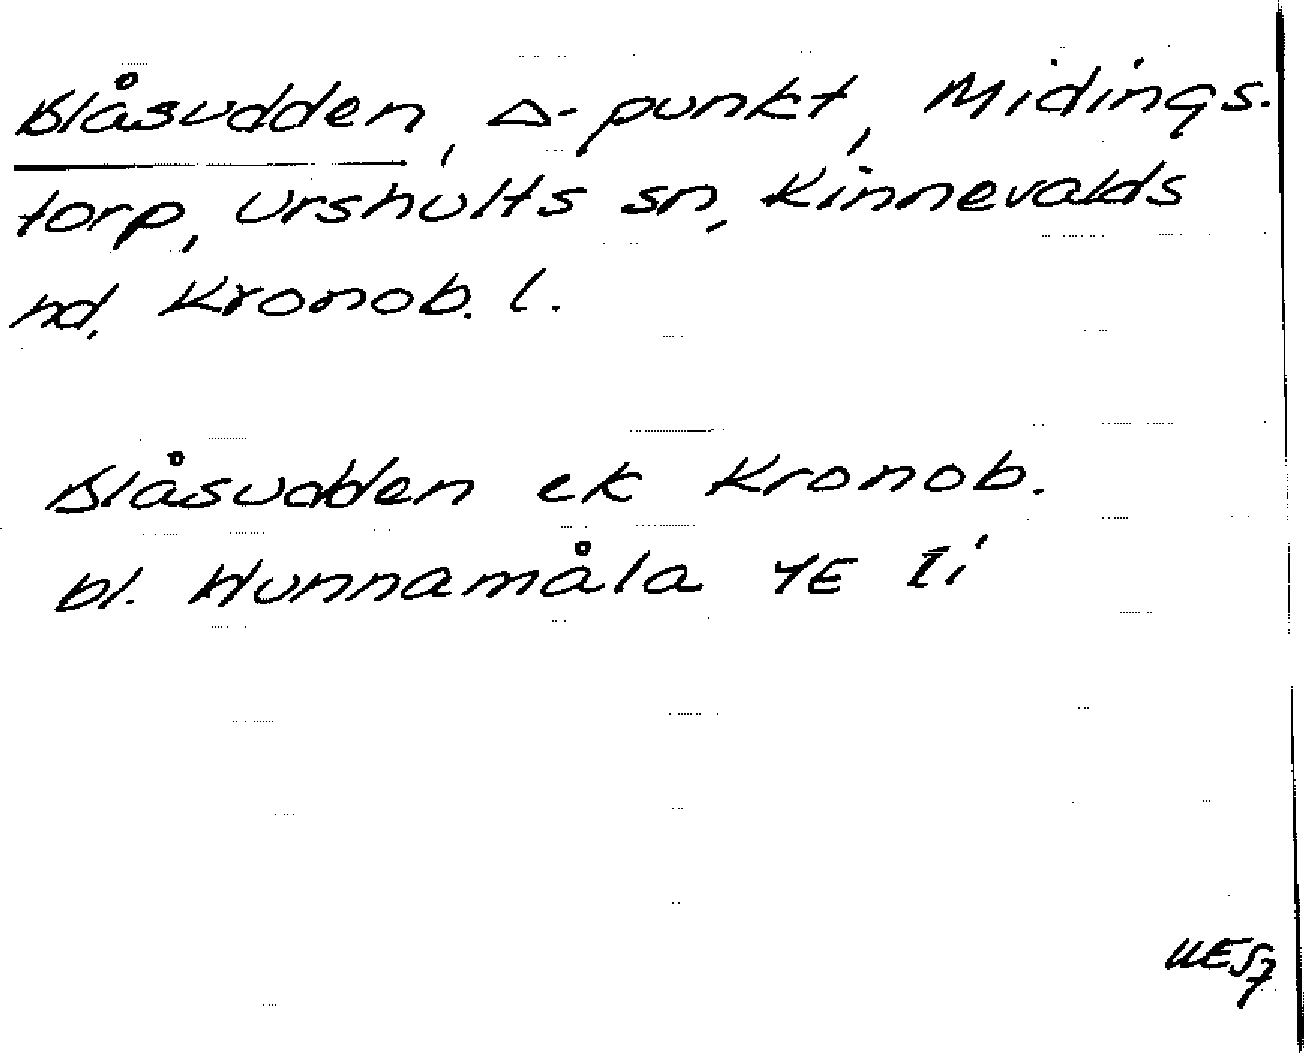 Blåsudden, Δ-punkt, Midings-
torp, Urshults sn, Kinnevalds
hd, Kronob. l.
Blåsudden ek Kronob.
bl. Hunnamåla 4E Ii